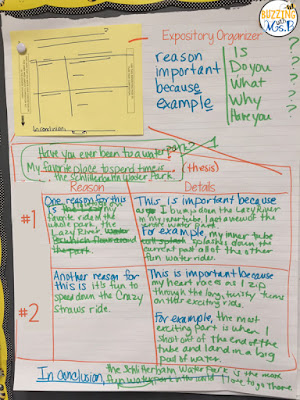 BUZZING
with
Ms. B
Expository Organizer
reason
important
because
example
Is
Do you
What
Why
Have you
?
?
?
?
In conclusion,
Have you ever been to a waterpark?
My favorite place to spend time is
the Schlitterbahn Water Park.
(thesis)
Reason
Details
#1
One reason for this
is
favorite ride in the
whole park, the
Lazy River,
the park.
This is important because
as I bump down the Lazy River
in my inner tube, I get a view of the
entire water park.
For example, my inner tube
splashes down the
current past all of the other
fun water rides.
#2
Another reason for
this is it's fun to
speed down the Crazy
Straws ride.
This is important because
my heart races as I zip
through the long, twisty turns
on this exciting ride.
For example, the most
exciting part is when I
shoot out of the end of the
tube and land in a big
pool of water.
In conclusion, the Schlitterbahn Water Park is the most
fun waterpark in the world. I love to go there.